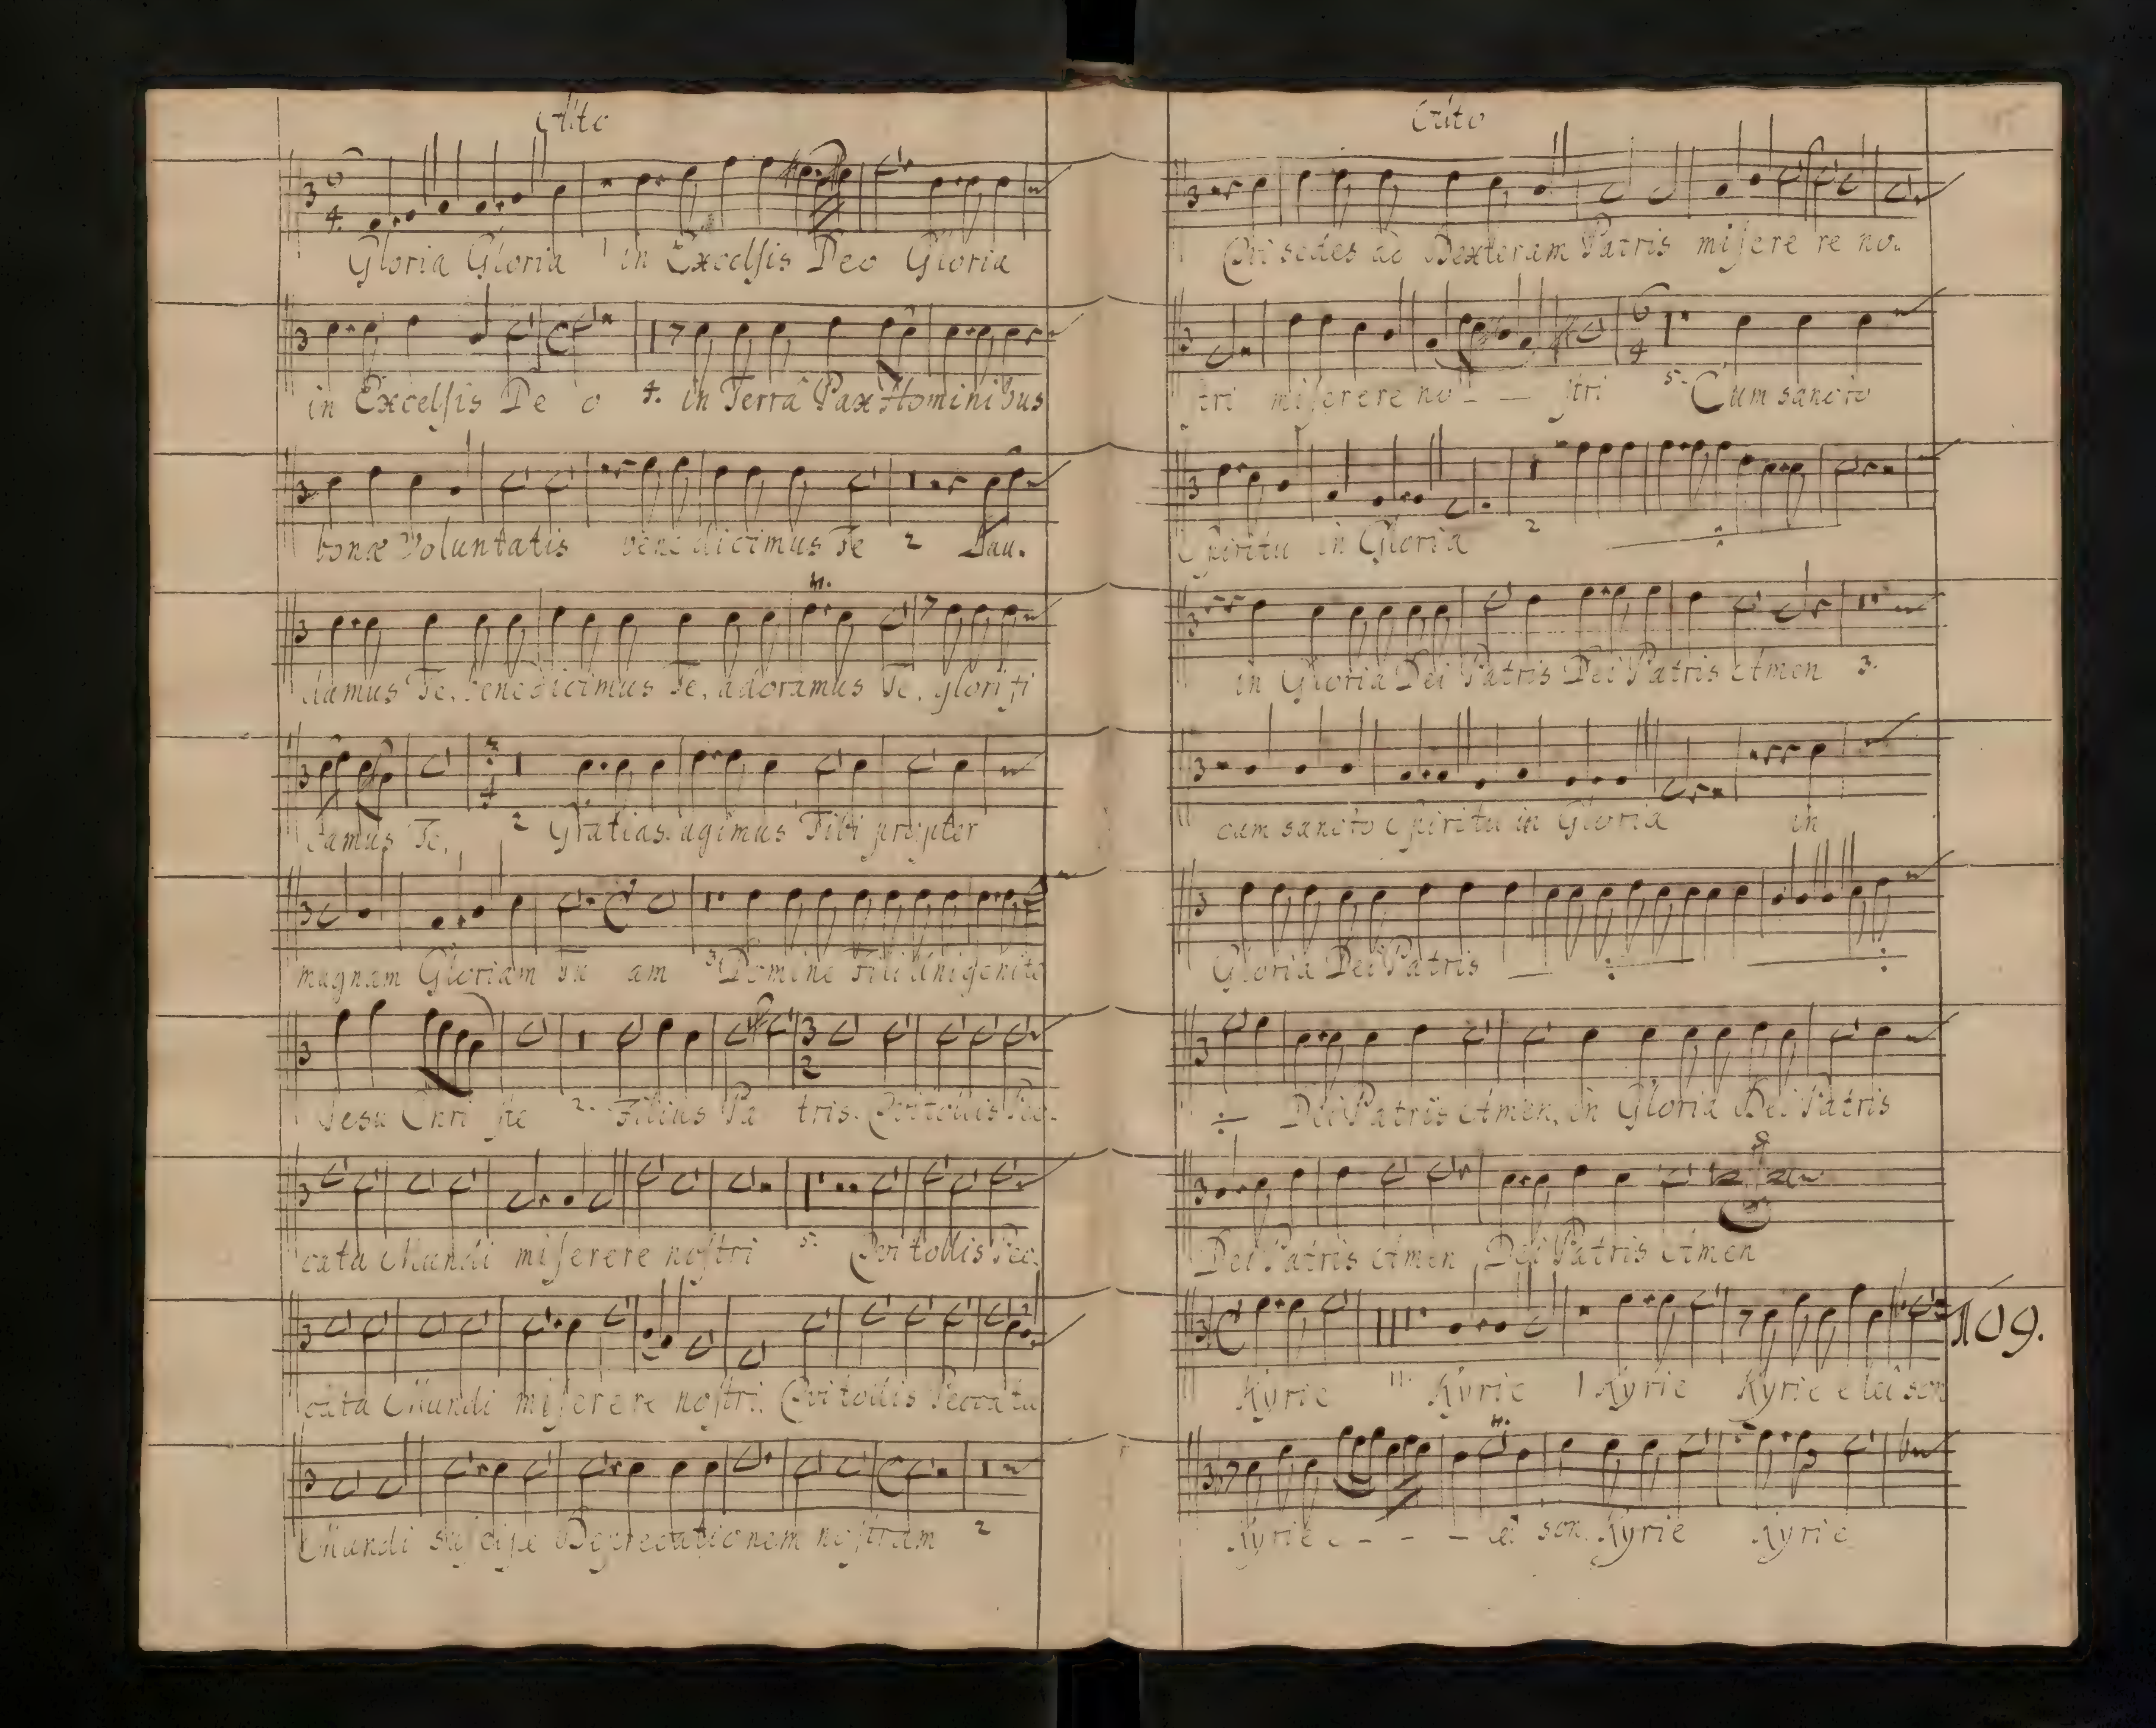 Alto
Gloria Gloria in Excelsis Deo Gloria
in Excelsis De o 4. in Terra Pax Hominibus
bonæ Voluntatis benedicimus Te 2 Lau.
damus Te, benedicimus Te, adoramus Te, glorifi
camus Te, 2 Gratias agimus Tibi propter
magnam Gloriam Tu am 3. Domine Fili Unigenite
Jesu Chri ste 2. Filius Pa tris. Qui tollis Pec.
cata Mundi miserere nostri 5. Qui tollis Pec.
cata Mundi miserere nostri. Qui tollis Peccata
Mundi suscipe Deprecationem nostram 2
Alto
Qui sedes ad Dexteram Patris misere re no.
stri miserere no - - stri 5. Cum sancto
Spiritu in Gloria 2
in Gloria Dei Patris Dei Patris Amen 3.
cum sancto Spiritu in Gloria in
Gloria Dei Patris
Dei Patris Amen, in Gloria Dei Patris
Dei Patris Amen Dei Patris Amen
109.
Kyrie 11. Kyrie 1 Kyrie Kyrie eleison
Kyrie e - - - lei son. Kyrie Kyrie